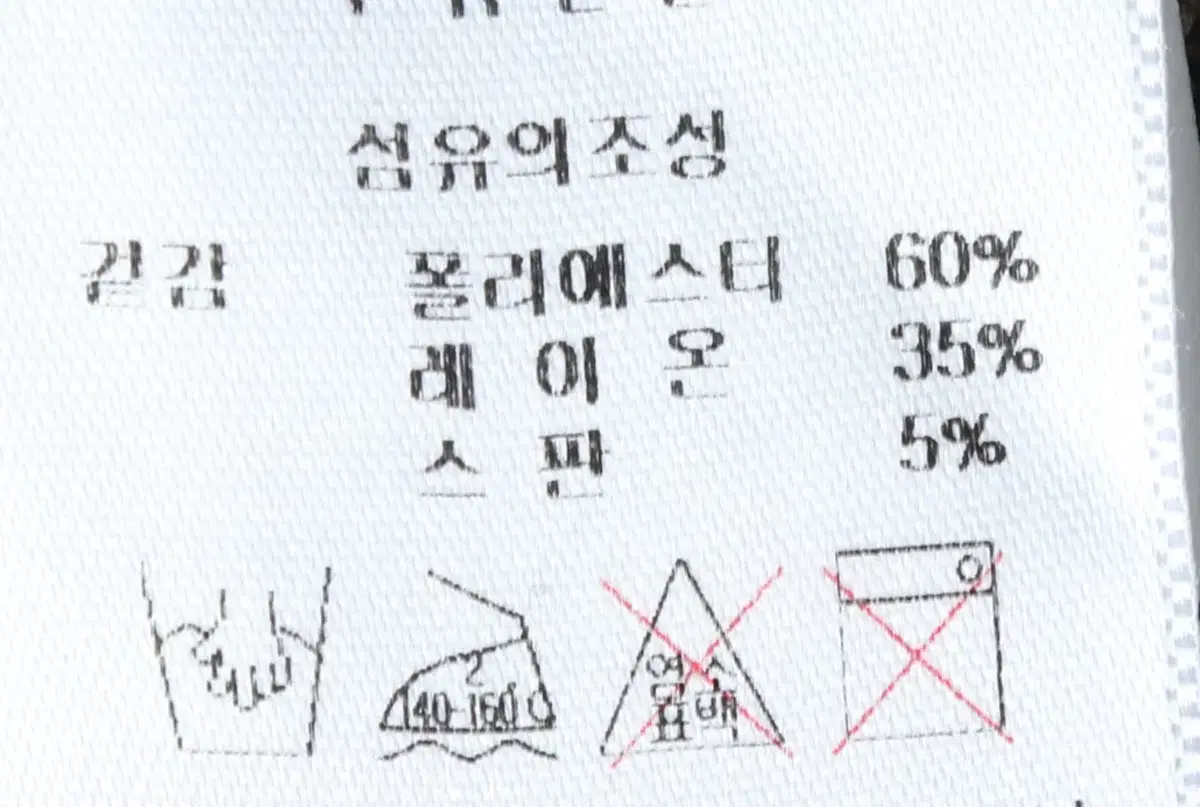 섬유의조성
겉감 폴리에스터 60%
레이온 35%
스판 5%
140-160℃
염소
표백